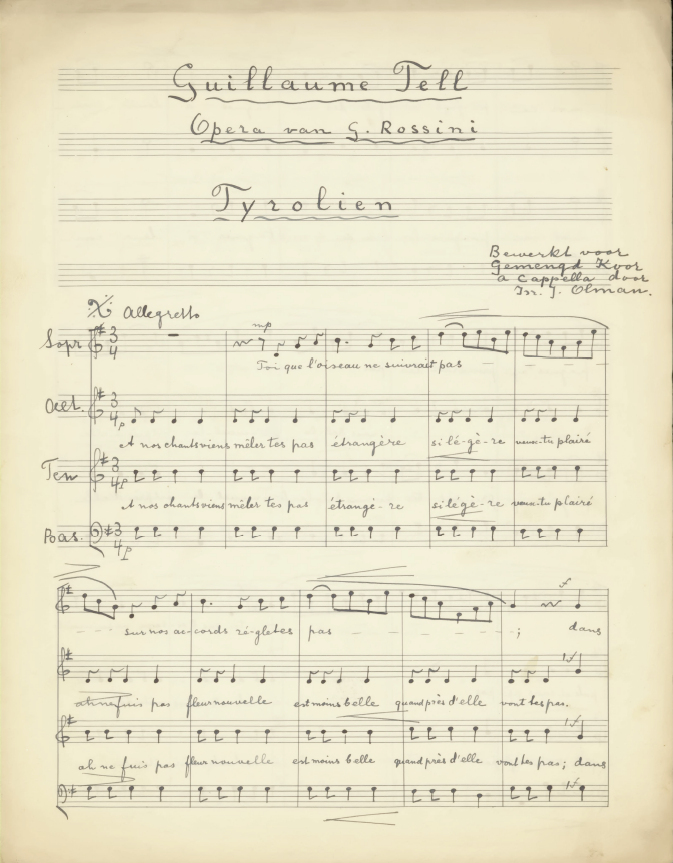 Guillaume Tell
Opera van G. Rossini
Tyrolien
Bewerkt voor
Gemengd Koor
a Cappella door
In. J. Olman.
Allegretto
Sopr
mp
Toi que l'oiseau ne suivrait pas
Acet.
p
et nos chants viens mêler tes pas étrangère si lé-gè-re veux-tu plaire
Ten
p
et nos chants viens mêler tes pas étrangè-re si légè-re veux-tu plaire
Bas.
p
sur nos ac-cords rè-gle tes pas ; dans
ah ne fuis pas fleur nouvelle est moins belle quand près d'elle vont tes pas.
ah ne fuis pas fleur nouvelle est moins belle quand près d'elle vont tes pas; dans